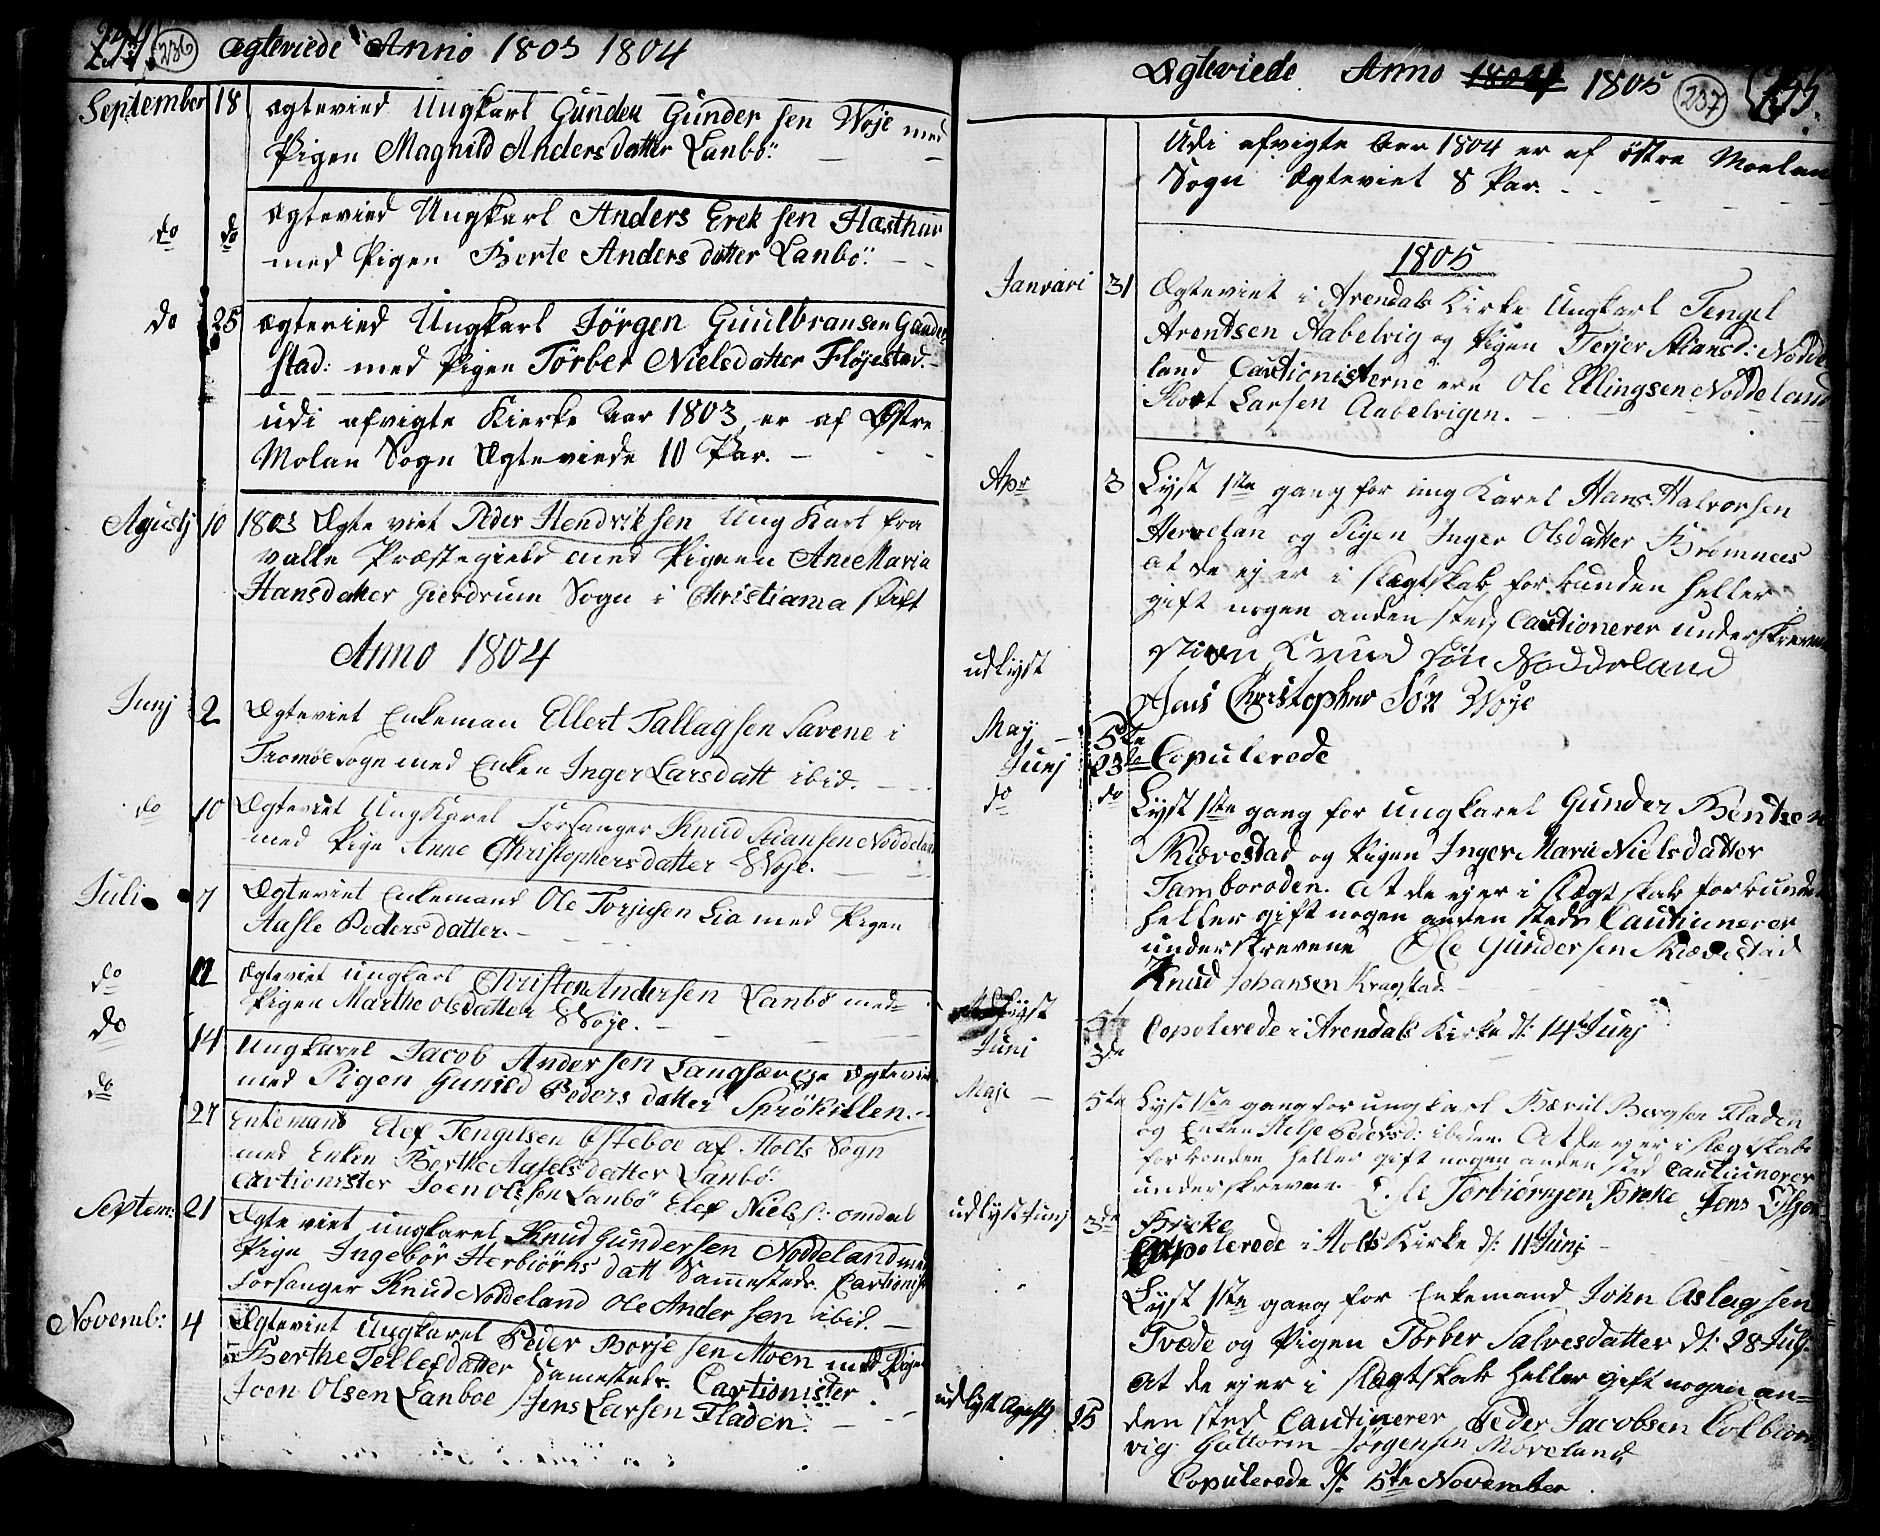 236 Ægteviede Anno 1803 1804
September 18 Ægtevied Ungkarl Gunder Gundersen Woje med
Pigen Magnild Andersdatter Lanbö.
do do Ægtevied Ungkarl Anders Ereksen Flasthur
med Pigen Berte Anders datter Lanbö.
do 25 Ægtevied Ungkarl Jörgen Guulbransen Gunder
stad: med Pigen Törber Nielsdatter Fløjestad.
udi afvigte Kierke Aar 1803 er af Østre
Molan Sogn Ægteviede 10 Par.
Agustj 10 1803 Ægteviet Peder Hendriksen Ung Karl fra
valle Præstegield med Pigeen Ane Maria
Hansdatter Gierdrum Sogn i Christiania stift
Anno 1804
Junj 2 Ægteviet Enkeman Ellert Tallagsen Savene i
Tromöe Sogn med Enken Inger Larsdatt ibid.
do 10 Ægteviet Ungkarel Forsanger Knud Stiansen Noddeland
med Pige Anne Christophersdatter Woje.
Juli 7 Ægteviet Enkemand Ole Torjusen Lia med Pigen
Aasle Pedersdatter.
do 12 Ægteviet Ungkarl Christen Andersen Lanbö med
Pigen Marthe Olsdatter Woje.
do 14 Ungkarel Jacob Andersen Langsæ Ægteviet
med Pigen Gunild Peders datter Sprökillen.
do 27 Enkemand Elef Tengelsen Østeboe af Holts Sogn
med Enken Berthe Aasels datter Lanbö.
Cartionister Joen Olssen Lanbö Elef Niels: omdal
Septem: 21 Ægteviet ungkarel Knud Gundersen Noddeland med
Pige Ingebör Herbiörns datt Sammesteds. Cartionist
Forsanger Knud Noddeland Ole Andersen ibid.
Novemb: 4 Ægteviet Ungkarel Peder Borjesen Moen med Pige
Berthe Tellefdatter Samesteds. Cartionister
Joen Olsen Lanboe Jens Larsen Fladen.
Ægteviede Anno 1804 1805 237
Udi afvigte Aar 1804 er af östre Moelan
Sogn Ægteviet 8 Par.
1805
Januari 31 Ægteviet i Arendals Kirke Ungkarl Tengel
Arentsen Aabelvig og Pigen Terjer Stiansd: Nodde
land Cautionisterne ere Ole Ellingsen Noddeland
Lars en Aabelvigen.
Apr 3 Lyst 1ste gang for ungKarel Hans Halvorsen
Herrelan og Pigen Inger Olsdatter Bromnees
at de ej er i slægtskab forbunden heller
gift nogen anden sted, Cautionerer underskreven
udlyst Stiøn Knud søn Noddeland
Jens Christopher Sön Woje
May 5te
Junj 23de Copulerede
do do Lyst 1ste gang for ungkarel Gunder Bentsen
Skiævestad og Pigen Inger Marie Nielsdatter
Tamboroden. At de ej er i slægtskab forbunde
heller gift nogen anden steds Cautiunerer
underskrevene Ole Gundersen Skiævestad
Knud Johansen Kragstad.
Udlyst
Juni 3de Copolerede i Arendals Kirke d: 14de Junj
Maje 5te Lyst 1ste gang for ungkarl Bærul Bergsen Fladen
og Enken Helje Pedersd: ibiden. At de ej er i slægtskab
forbonden heller gift nogen anden sted Cautiunerer
underskrevne. Ole Torbiörnsen Breke Jens
udlyst Junj 3de Breke
Copolerede i Holts Kirke d: 11 Junj
Lyst 1ste gang for Enkemand John Aslagsen
Tvede og Pigen Törber Salvesdatter d: 28 July.
at de ej er i slægtskab heller gift nogen an=
udlyst Agusti 25 den sted Cautiuerer Peder Jacobsen Colbiorn
vig Guttorm Jörgensen Moveland
Copulerede d: 5te November